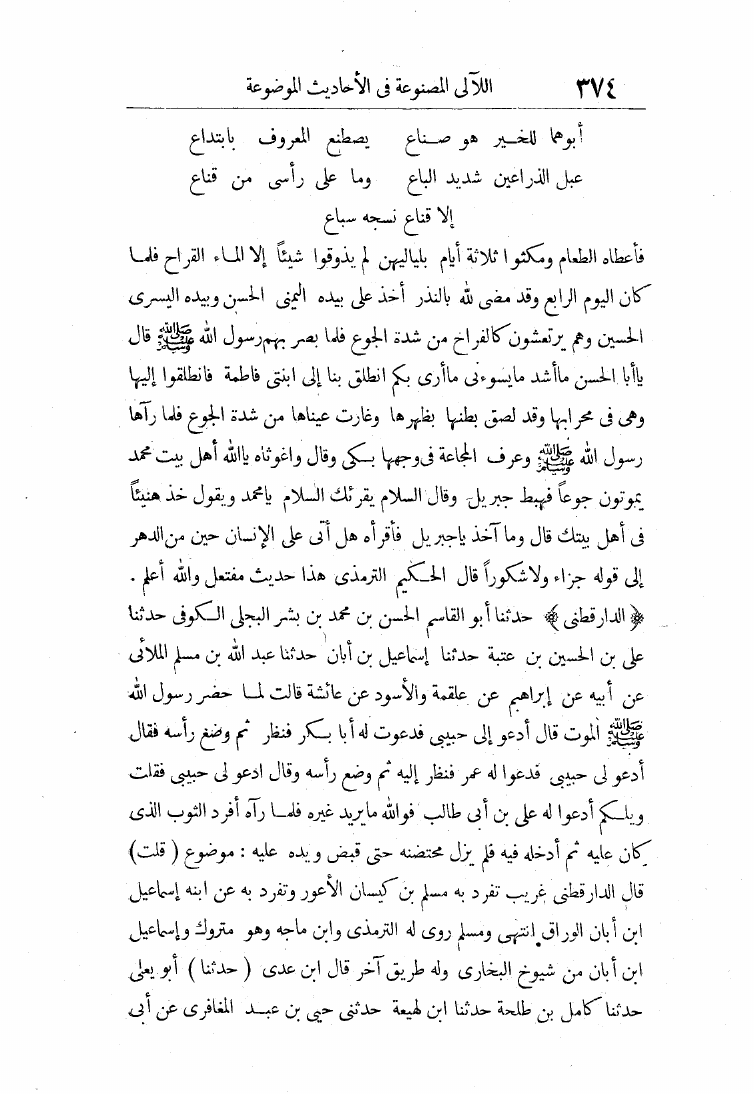 ٣٧٤ اللآلى المصنوعة فى الأحاديث الموضوعة
أبوهما للخير هو صناع يصطنع المعروف بابتداع
عبل الذراعين شديد الباع وما على رأسى من قناع
إلا قناع نسجه سباع
فأعطاه الطعام ومكثوا ثلاثة أيام بلياليهن لم يذوقوا شيئاً إلا الماء القراح فلما
كان اليوم الرابع وقد مضى لله بالنذر أخذ على بيده اليمنى الحسن وبيده اليسرى
الحسين وهم يرتعشون كالفراخ من شدة الجوع فلما بصر بهم رسول الله ﷺ قال
ياأبا الحسن ماأشد مايسوءنى ماأرى بكم انطلق بنا إلى ابنتى فاطمة فانطلقوا إليها
وهى فى محرابها وقد لصق بطنها بظهرها وغارت عيناها من شدة الجوع فلما رآها
رسول الله ﷺ وعرف المجاعة فى وجهها بكى وقال واغوثاه ياالله أهل بيت محمد
يموتون جوعاً فهبط جبريل وقال السلام يقرئك السلام يامحمد ويقول خذ هنيئاً
فى أهل بيتك قال وما آخذ ياجبريل فأقرأه هل أتى على الإنسان حين من الدهر
إلى قوله جزاء ولاشكوراً قال الحكيم الترمذى هذا حديث مفتعل والله أعلم .
﴿ الدارقطنى ﴾ حدثنا أبو القاسم الحسن بن محمد بن بشر البجلى الكوفى حدثنا
على بن الحسين بن عتبة حدثنا إسماعيل بن أبان حدثنا عبد الله بن مسلم الملائى
عن أبيه عن إبراهيم عن علقمة والأسود عن عائشة قالت لما حضر رسول الله
ﷺ الموت قال أدعو إلى حبيبى فدعوت له أبا بكر فنظر ثم وضع رأسه فقال
أدعو لى حبيبى فدعوا له عمر فنظر إليه ثم وضع رأسه وقال ادعو لى حبيبى فقلت
ويلكم أدعوا له على بن أبى طالب فوالله مايريد غيره فلما رآه أفرد الثوب الذى
كان عليه ثم أدخله فيه فلم يزل محتضنه حتى قبض ويده عليه : موضوع ( قلت )
قال الدارقطنى غريب تفرد به مسلم بن كيسان الأعور وتفرد به عن ابنه إسماعيل
ابن أبان الوراق انتهى ومسلم روى له الترمذى وابن ماجه وهو متروك وإسماعيل
ابن أبان من شيوخ البخارى وله طريق آخر قال ابن عدى ( حدثنا ) أبو يعلى
حدثنا كامل بن طلحة حدثنا ابن لهيعة حدثنى حيى بن عبد المغافرى عن أبى